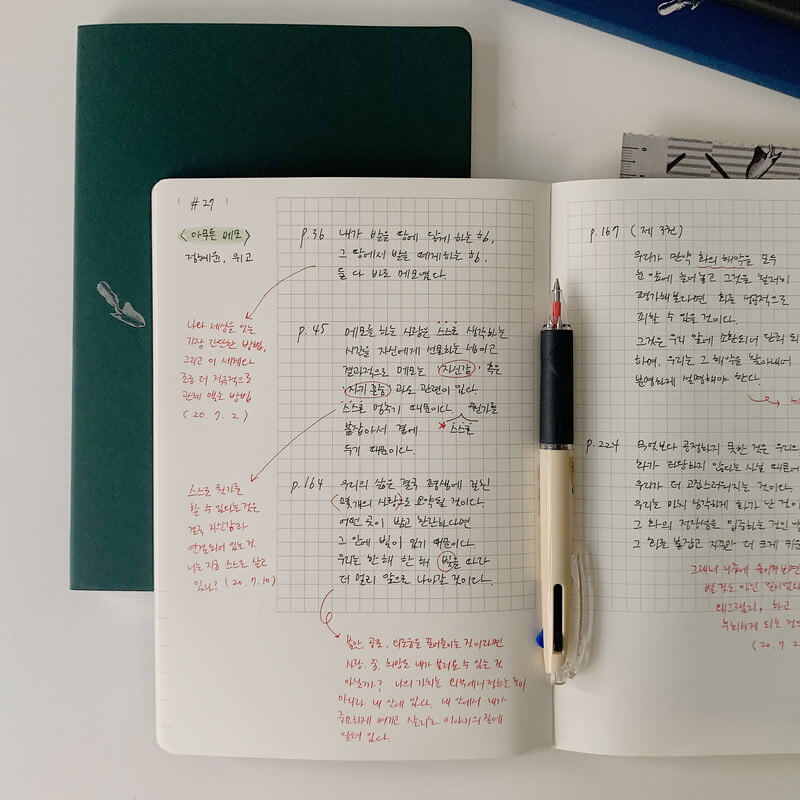 #27
<아무튼 메모>
정혜윤, 위고
p.36 내가 발을 땅에 닿게 하는 힘,
그 땅에서 발을 떼게하는 힘,
둘 다 바로 메모였다.
나와 세상을 잇는
가장 간단한 방법,
그리고 이 세계와
조금 더 적극적으로
관계 맺는 방법
(20.7.2)
p.45 메모를 하는 사람은 스스로 생각하는
시간을 자신에게 선물하는 셈이고
결과적으로 메모는 '자신감' 혹은
'자기 존중'과도 관련이 있다.
스스로 멈추기 때문이다. 뭔가를
붙잡아서 곁에 스스로
두기 때문이다.
스스로 뭔가를
할 수 있다는 것은
결국 자신감과
연결되어 있는 것.
나는 지금 스스로 살고
있나? (20.7.10)
p.164 우리의 삶은 결국 평생에 걸친
몇개의 사랑으로 요약될 것이다.
어떤 곳이 밝고 찬란하다면
그 안에 빛이 있기 때문이다.
우리는 한 해 한 해 빛을 따라
더 멀리 앞으로 나아갈 것이다.
불안, 공포, 외로움을 끌어들이는 것이라면
사랑, 꿈, 희망도 내가 불러올 수 있는 것
아닐까? 나의 가치는 외부에서 정하는 것이
아니라 내 안에 있다. 내 안에서 내가
중요하게 여기고 살피는 이야기의 질에
달려 있다.
p.167 (제 3권)
우리가 만약 화의 해악을 모두
눈 앞에 늘어놓고 그것을 철저히
평가해본다면 화를 성공적으로
피할 수 있을 것이다.
그것은 우리 앞에 소환되어 단죄 되
하며, 우리는 그 해악을 찾아내어
분명하게 설명해야 한다.
p.224 무엇보다 공정하지 못한 것은 우리의
화가 타당하지 않다는 사실 때문에
우리가 더 고집스러워지는 것이다.
우리는 마치 심각하게 화가 난 것이
그 화의 정당성을 입증하는 것인 양
그 화를 붙잡고 더 크게 키운
그래서 나중에 돌이켜보면
별 것도 아닌 일이었다
왜그랬지, 하고
후회하게 되는 것
(20.7.2